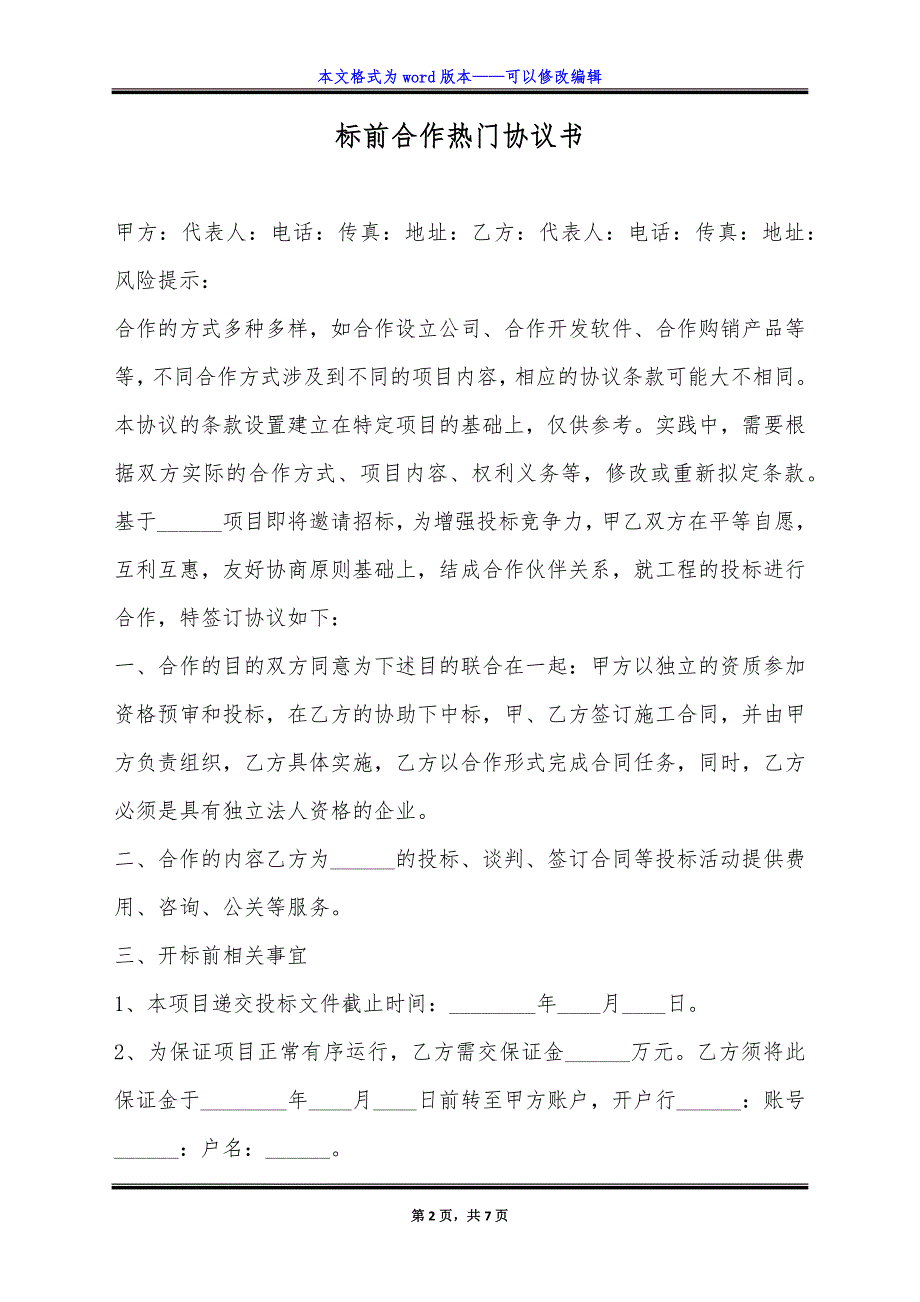 本文格式为 word 版本——可以修改编辑
标前合作热门协议书
甲方：代表人：电话：传真：地址：乙方：代表人：电话：传真：地址：
风险提示：
合作的方式多种多样，如合作设立公司、合作开发软件、合作购销产品等
等，不同合作方式涉及到不同的项目内容，相应的协议条款可能大不相同。
本协议的条款设置建立在特定项目的基础上，仅供参考。实践中，需要根
据双方实际的合作方式、项目内容、权利义务等，修改或重新拟定条款。
基于______项目即将邀请招标，为增强投标竞争力，甲乙双方在平等自愿，
互利互惠，友好协商原则基础上，结成合作伙伴关系，就工程的投标进行
合作，特签订协议如下：
一、合作的目的双方同意为下述目的联合在一起：甲方以独立的资质参加
资格预审和投标，在乙方的协助下中标，甲、乙方签订施工合同，并由甲
方负责组织，乙方具体实施，乙方以合作形式完成合同任务，同时，乙方
必须是具有独立法人资格的企业。
二、合作的内容乙方为______的投标、谈判、签订合同等投标活动提供费
用、咨询、公关等服务。
三、开标前相关事宜
1、本项目递交投标文件截止时间：________年____月____日。
2、为保证项目正常有序运行，乙方需交保证金______万元。乙方须将此
保证金于________年____月____日前转至甲方账户，开户行______：账号
______：户名：______。
第 2 页，共 7 页